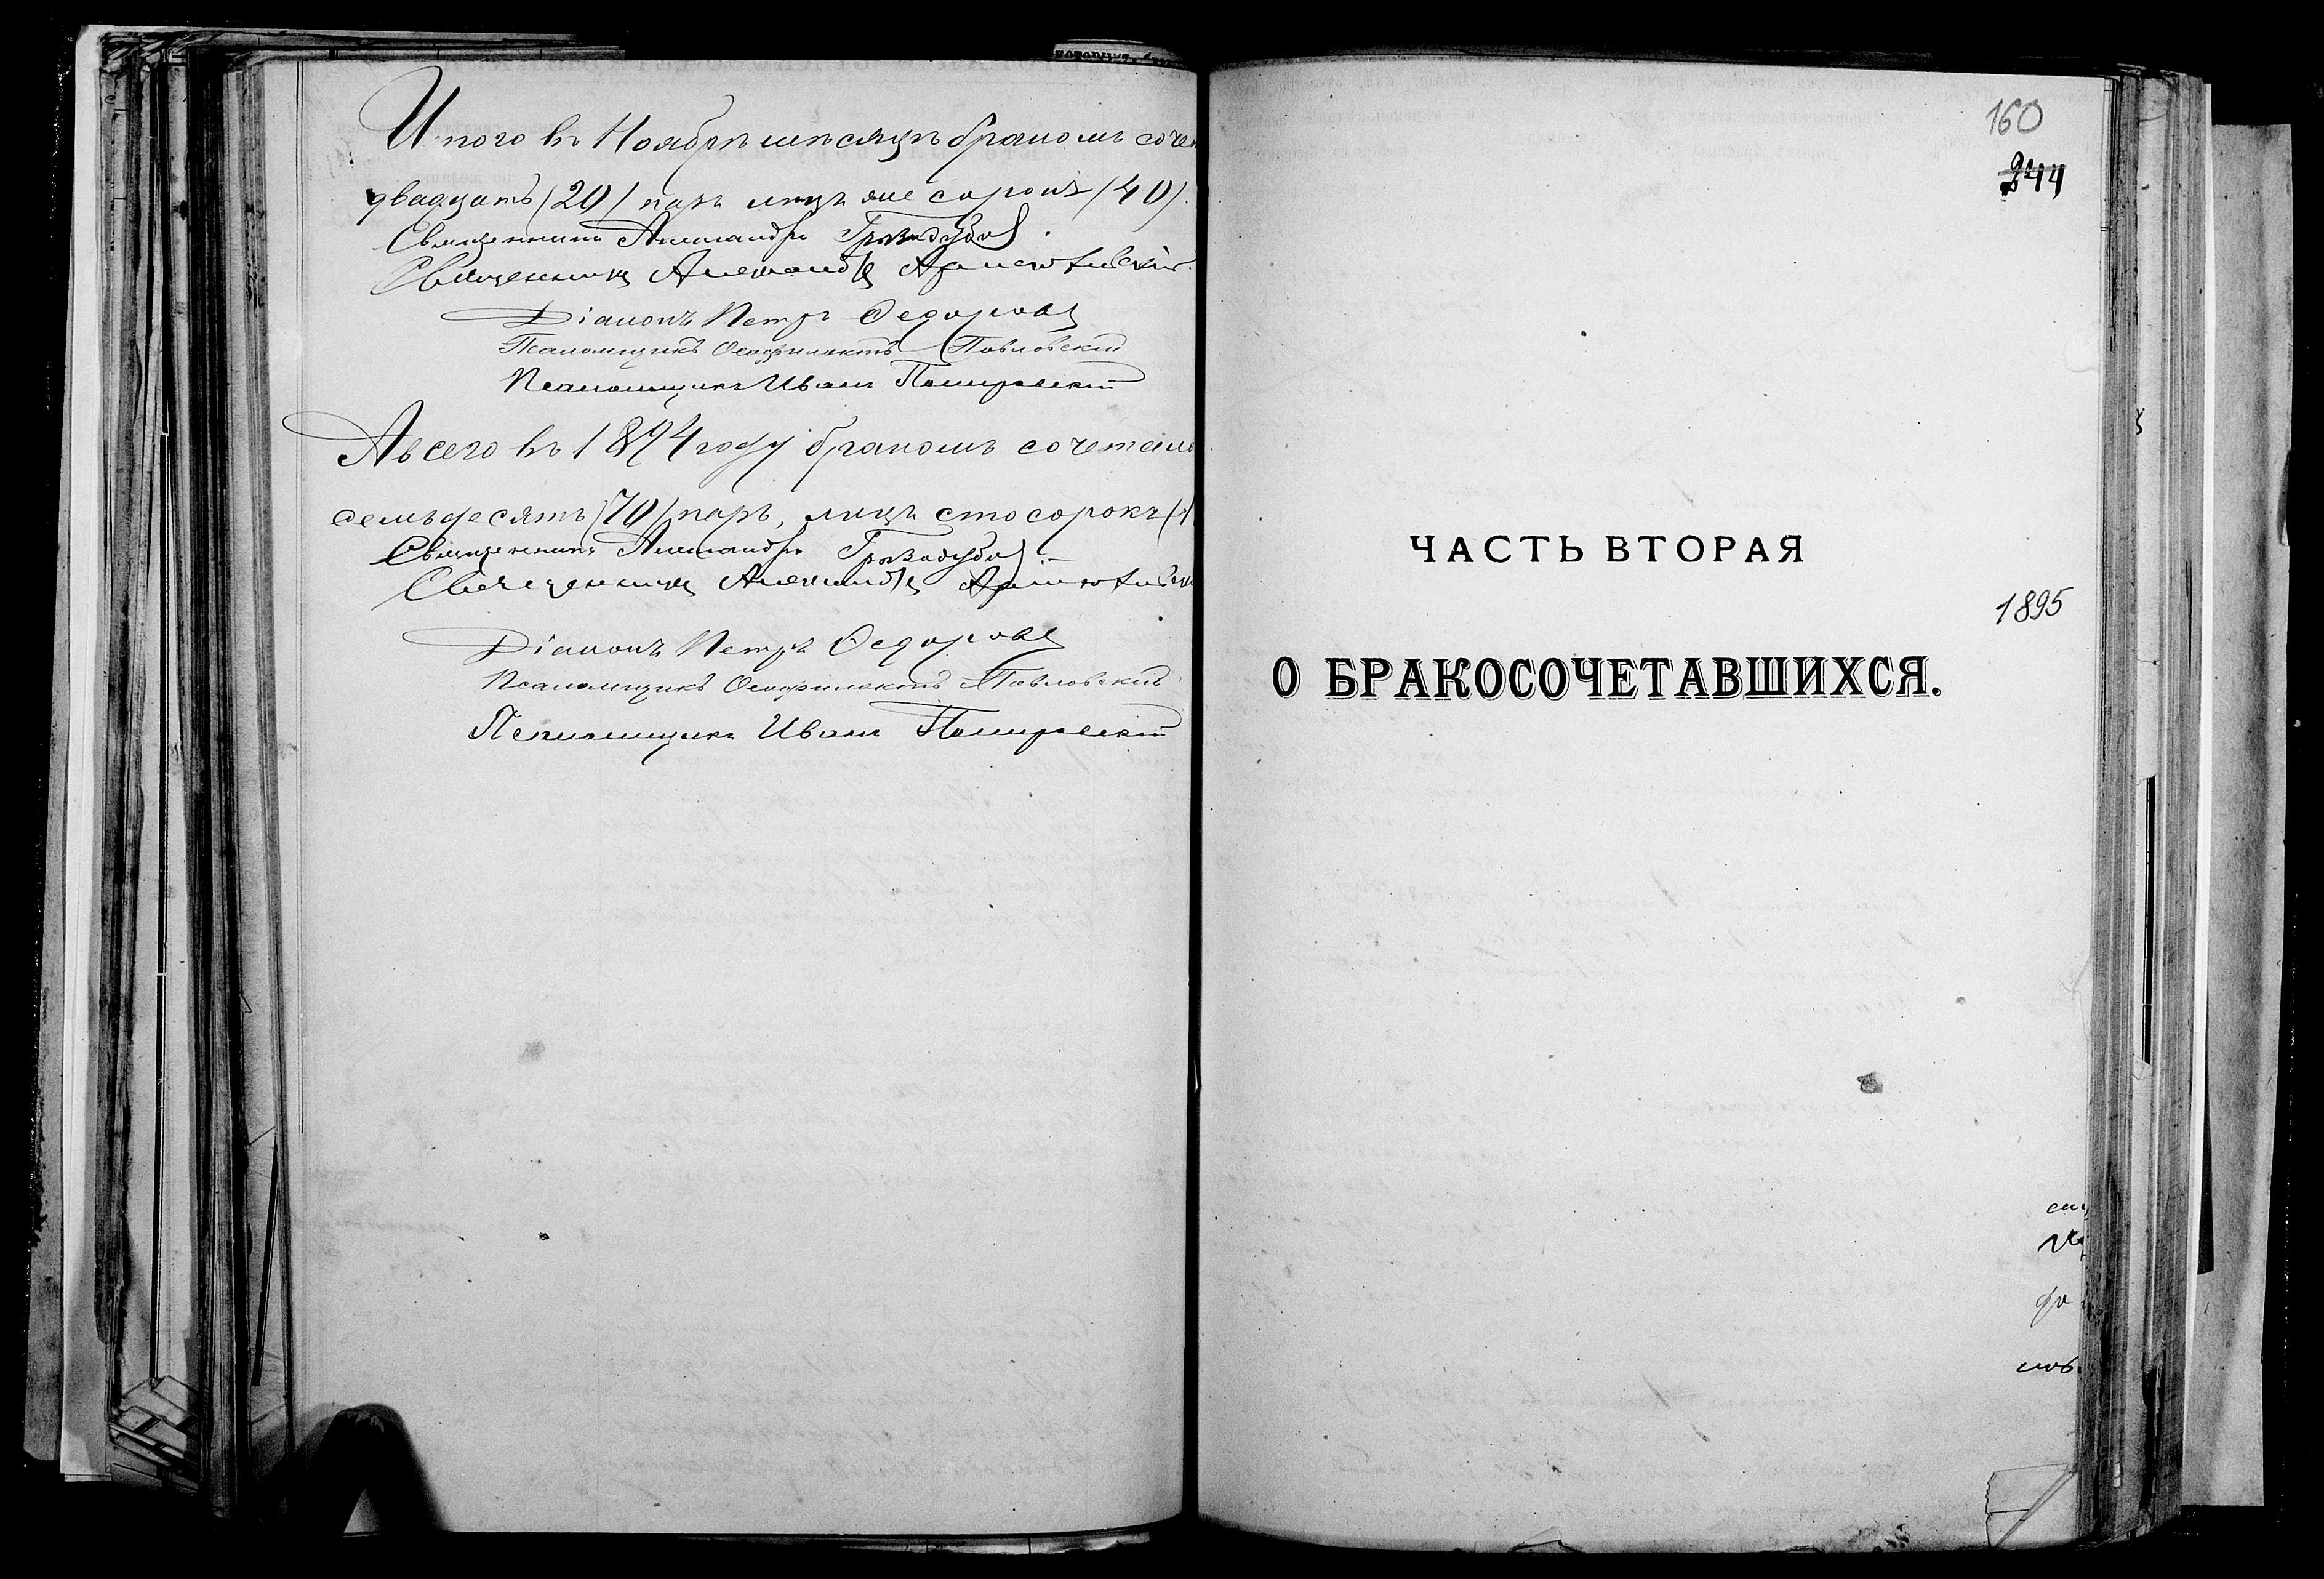 Итого въ Ноябрѣ мѣсяцѣ бракомъ соче
двадцать (20) паръ лицъ же сорокъ (40).
Священникъ Александръ
Священникъ Александръ
Діаконъ Петръ Федоровъ
Псаломщикъ Феофилактъ Павловскій
Псаломщикъ Иванъ
А всего въ 1894 году бракомъ сочетало
семьдесятъ (70) паръ, лицъ сто сорокъ (1
Священникъ Александръ
Священникъ Александръ
Діаконъ Петръ Федоровъ
Псаломщикъ Феофилактъ Павловскій
Псаломщикъ Иванъ
160
244
ЧАСТЬ ВТОРАЯ
1895
О БРАКОСОЧЕТАВШИХСЯ.